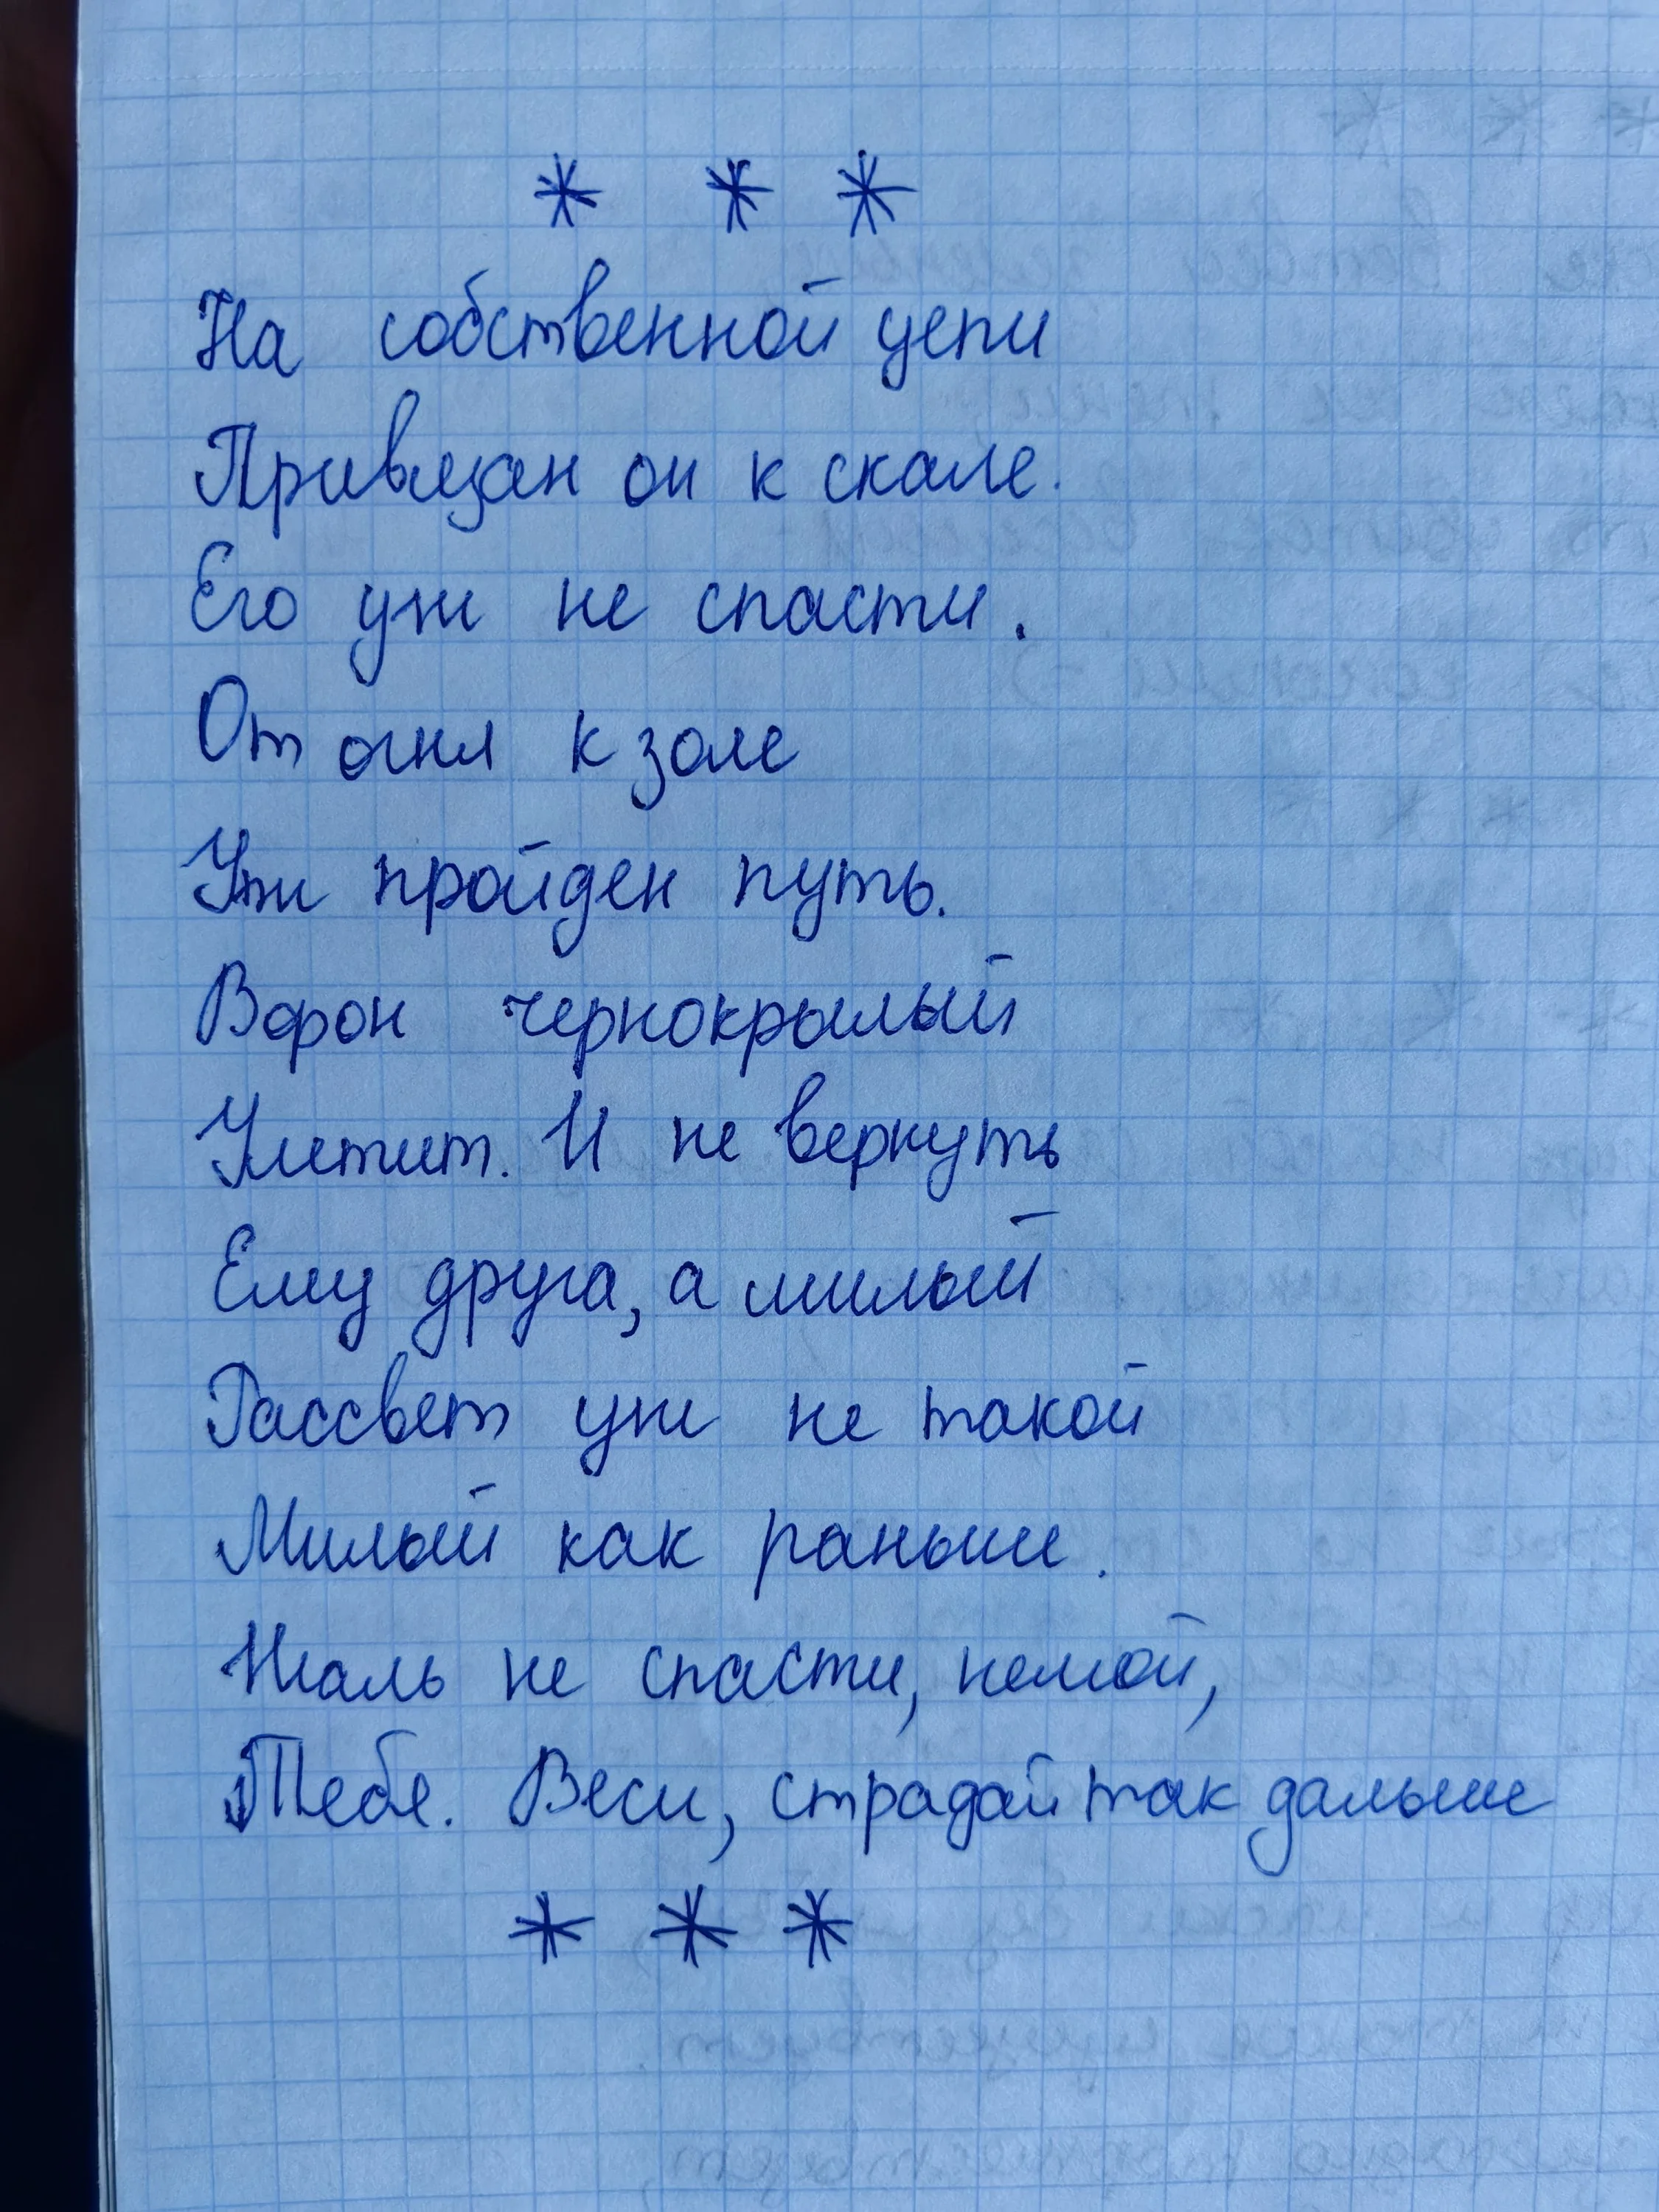 * * *
На собственной цепи
Привязан он к скале.
Его уж не спасти.
От огня к золе
Уж пройден путь.
Ворон чернокрылый
Улетит. И не вернуть
Ему друга, а милый
Рассвет уж не такой
Милый как раньше.
Жаль не спасти, немой,
Тебе. Виси, страдай так дальше
* * *